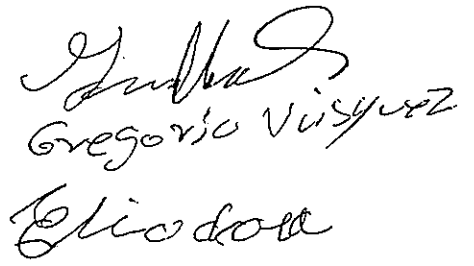 Gregorio Vasquez
Eliodora